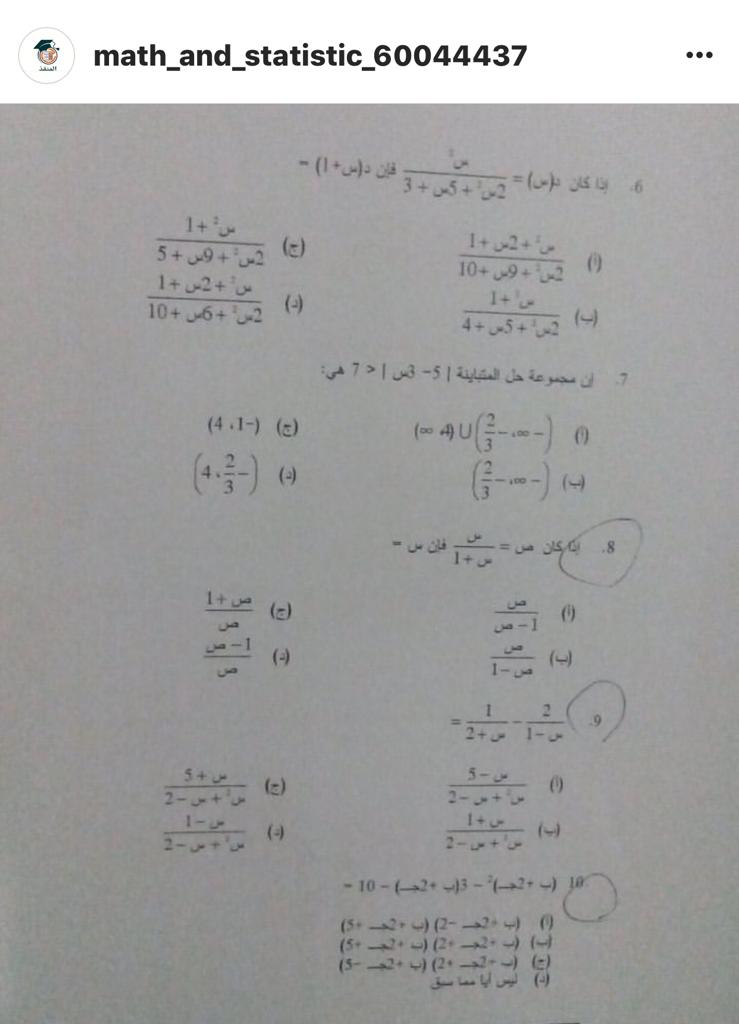 math_and_statistic_60044437
المنقذ
6. إذا كان د(س) = س² / (2س² + 5س + 3) فإن د(س+1) =
(أ) (س² + 2س + 1) / (2س² + 9س + 10) (ج) (س² + 1) / (2س² + 9س + 5)
(ب) (س² + 1) / (2س² + 5س + 4) (د) (س² + 2س + 1) / (2س² + 6س + 10)
7. إن مجموعة حل المتباينة | 5 – 3س | < 7 هي:
(أ) (– ∞، – 2/3) U (4، ∞) (ج) (–1، 4)
(ب) (– ∞، – 2/3) (د) (– 2/3، 4)
8. إذا كان ص = س / (س + 1) فإن س =
(أ) ص / (1 – ص) (ج) (ص + 1) / ص
(ب) ص / (ص – 1) (د) (1 – ص) / ص
9. 2 / (س – 1) – 1 / (س + 2) =
(أ) (س – 5) / (س² + س – 2) (ج) (س + 5) / (س² + س – 2)
(ب) (س + 1) / (س² + س – 2) (د) (س – 1) / (س² + س – 2)
10. (ب + 2جـ)² – 3(ب + 2جـ) – 10 =
(أ) (ب + 2جـ – 2) (ب + 2جـ + 5)
(ب) (ب + 2جـ + 2) (ب + 2جـ + 5)
(ج) (ب + 2جـ + 2) (ب + 2جـ – 5)
(د) ليس أيا مما سبق